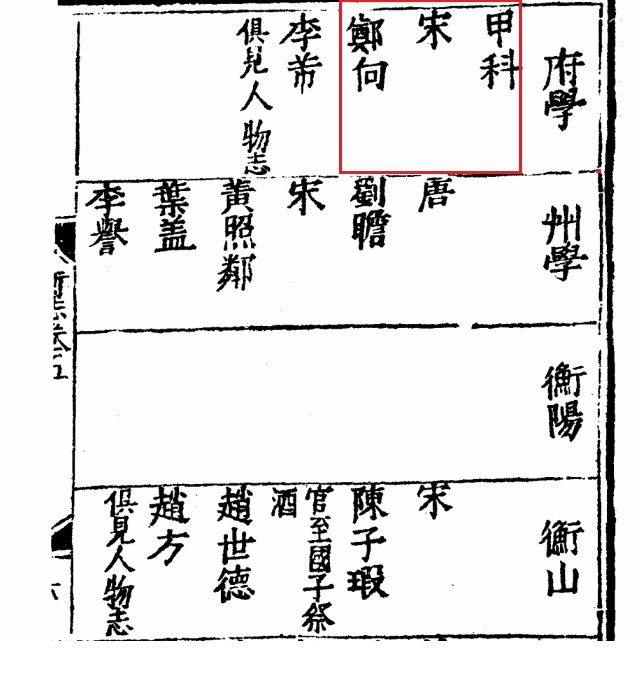 府學
甲科
宋
鄭向
李芾
俱見人物志
州學
唐
劉瞻
宋
黃照鄰
葉盖
李譽
衡陽
衡山
宋
陳子瑕
官至國子祭
酒
趙世德
趙方
俱見人物志